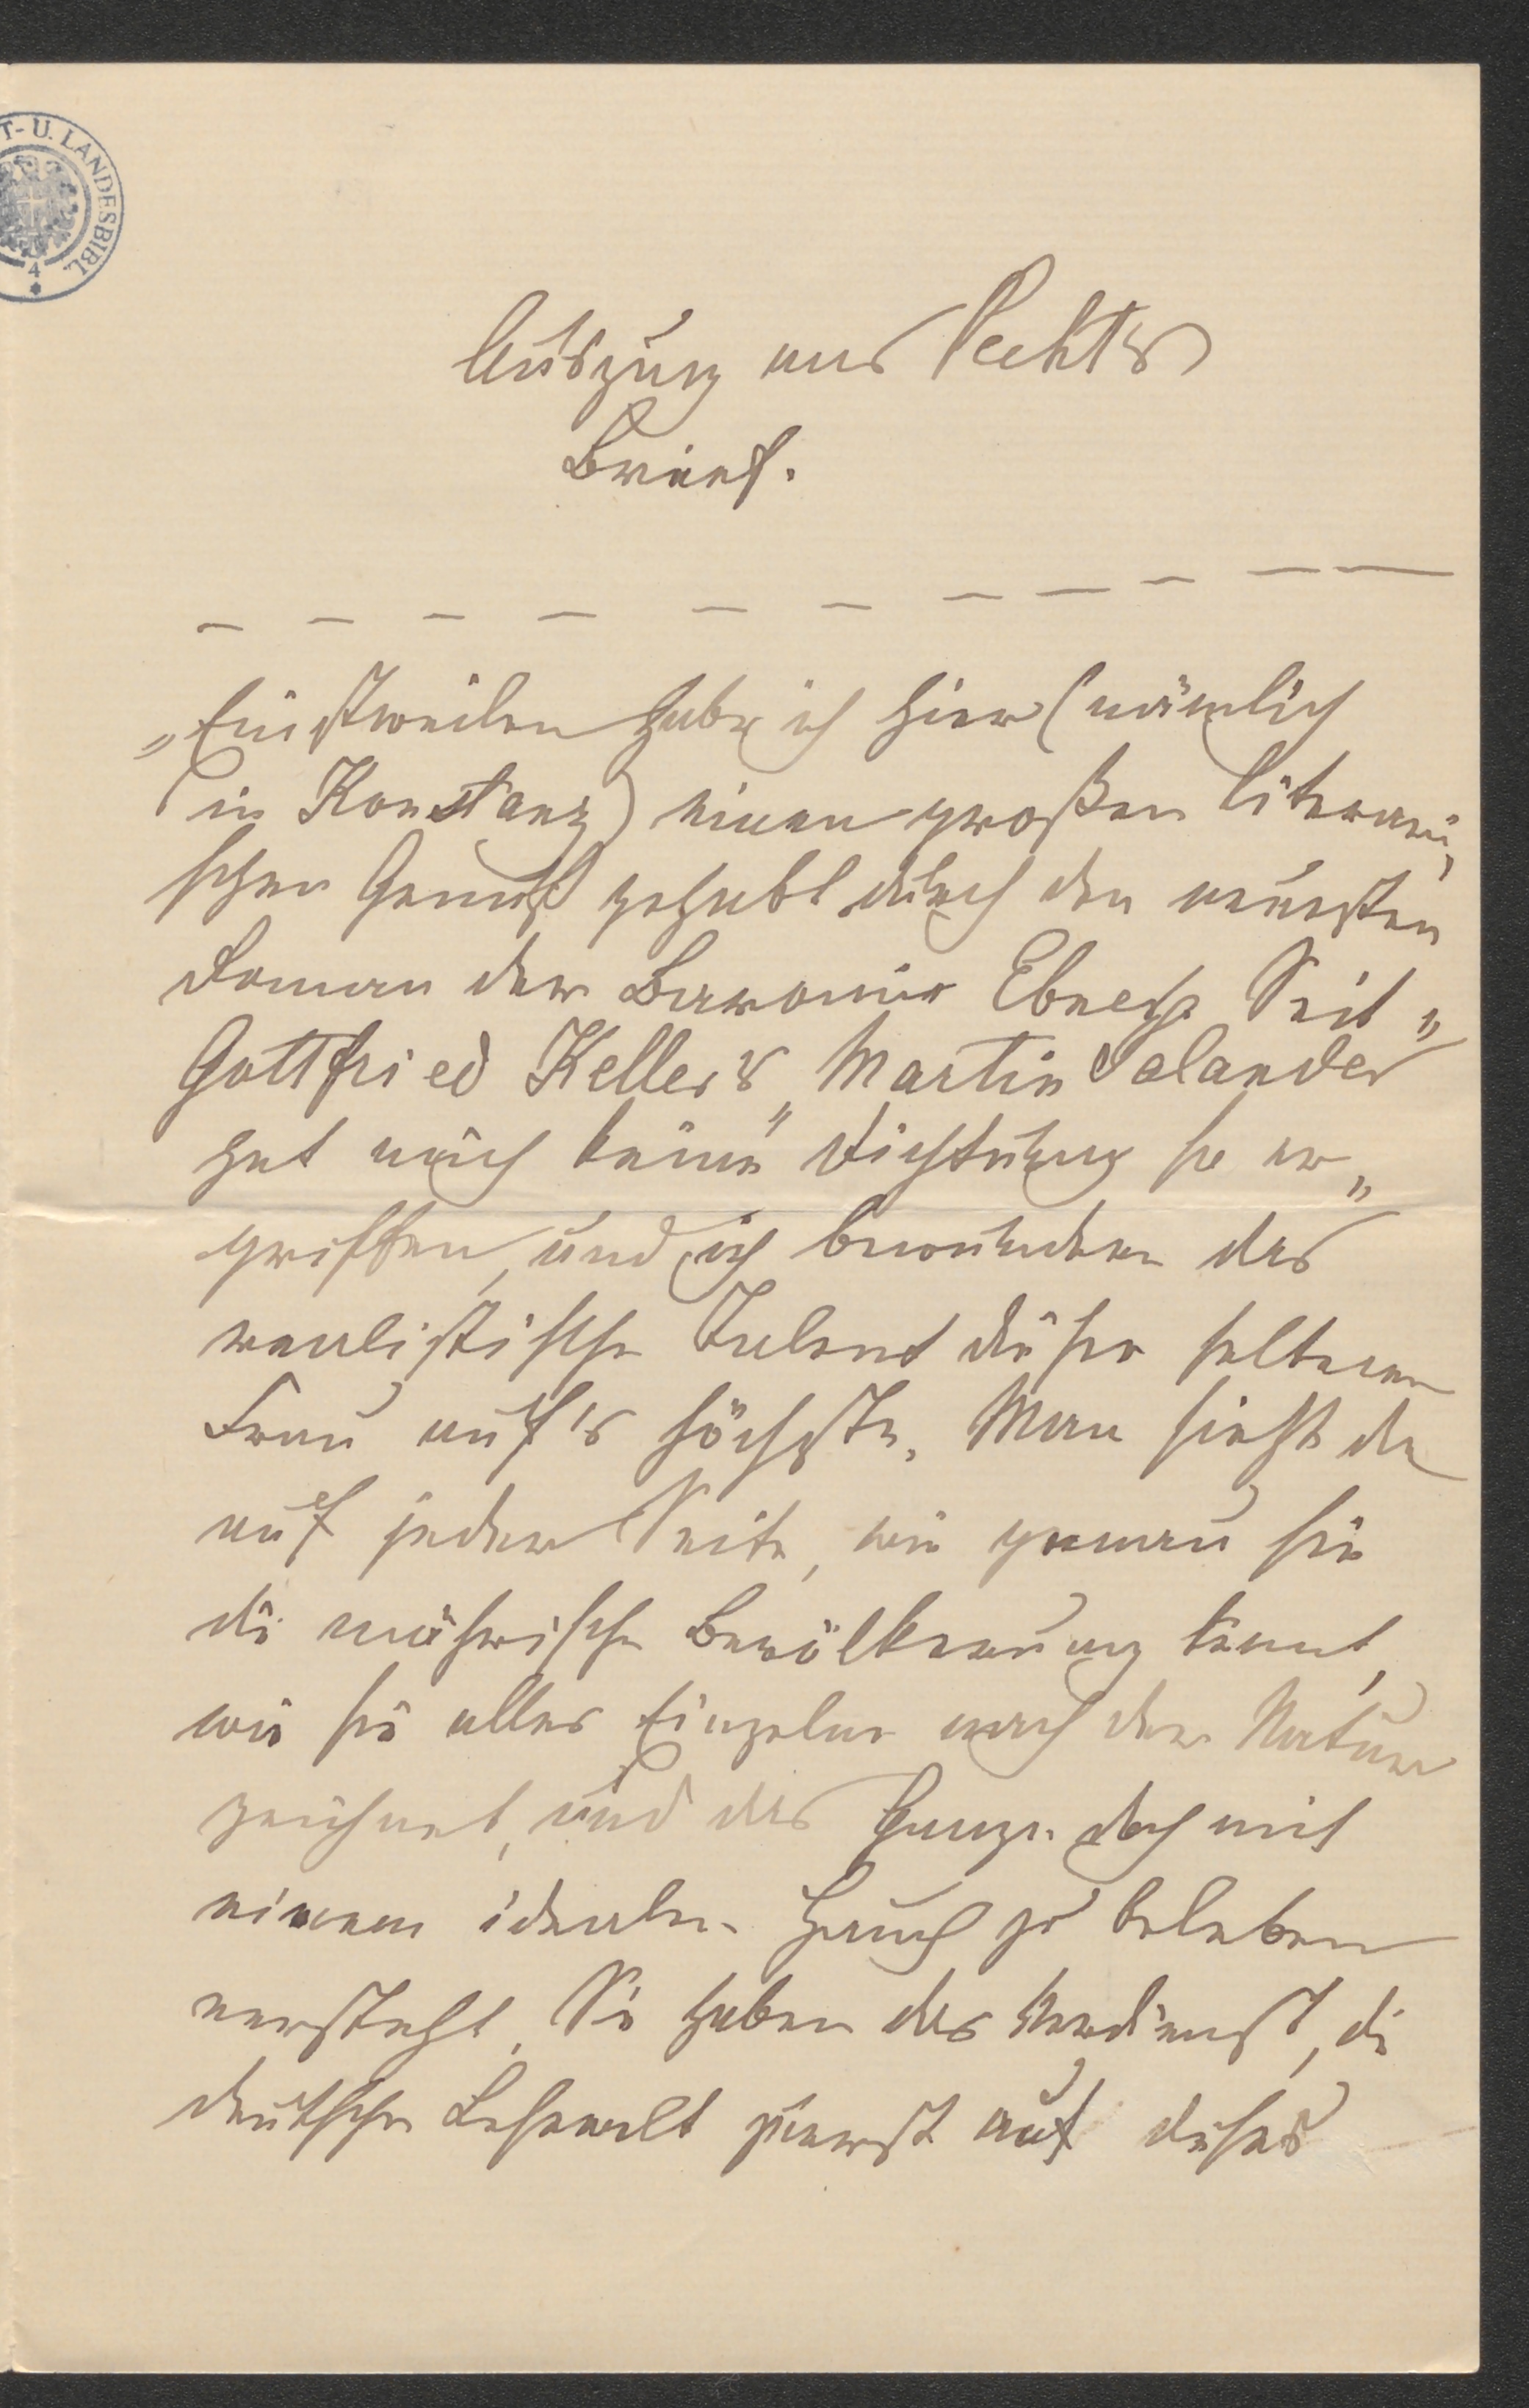 T- U. LANDESBIBL.
4
Auszug aus Pechts
Brief.
— — — — — — — — — — —
„Einstweilen habe ich hier (nämlich
in Konstanz) einen großen literari„
schen Genuß gehabt durch den neuesten
Roman der Baronin Ebner. Seit
Gottfried Kellers „Martin Salander"
hat mich keine Dichtung so er„
griffen, und ich bewundere das
realistische Talent dieser seltenen
Frau auf's höchste. Man sieht da
auf jeder Seite, wie genau sie
die mährische Bevölkerung kennt,
wie sie alles Einzelne nach der Natur
zeichnet, und das Ganze doch mit
einem idealen Hauch zu beleben
versteht. Sie haben das Verdienst, die
deutsche Lesewelt zuerst auf dieses